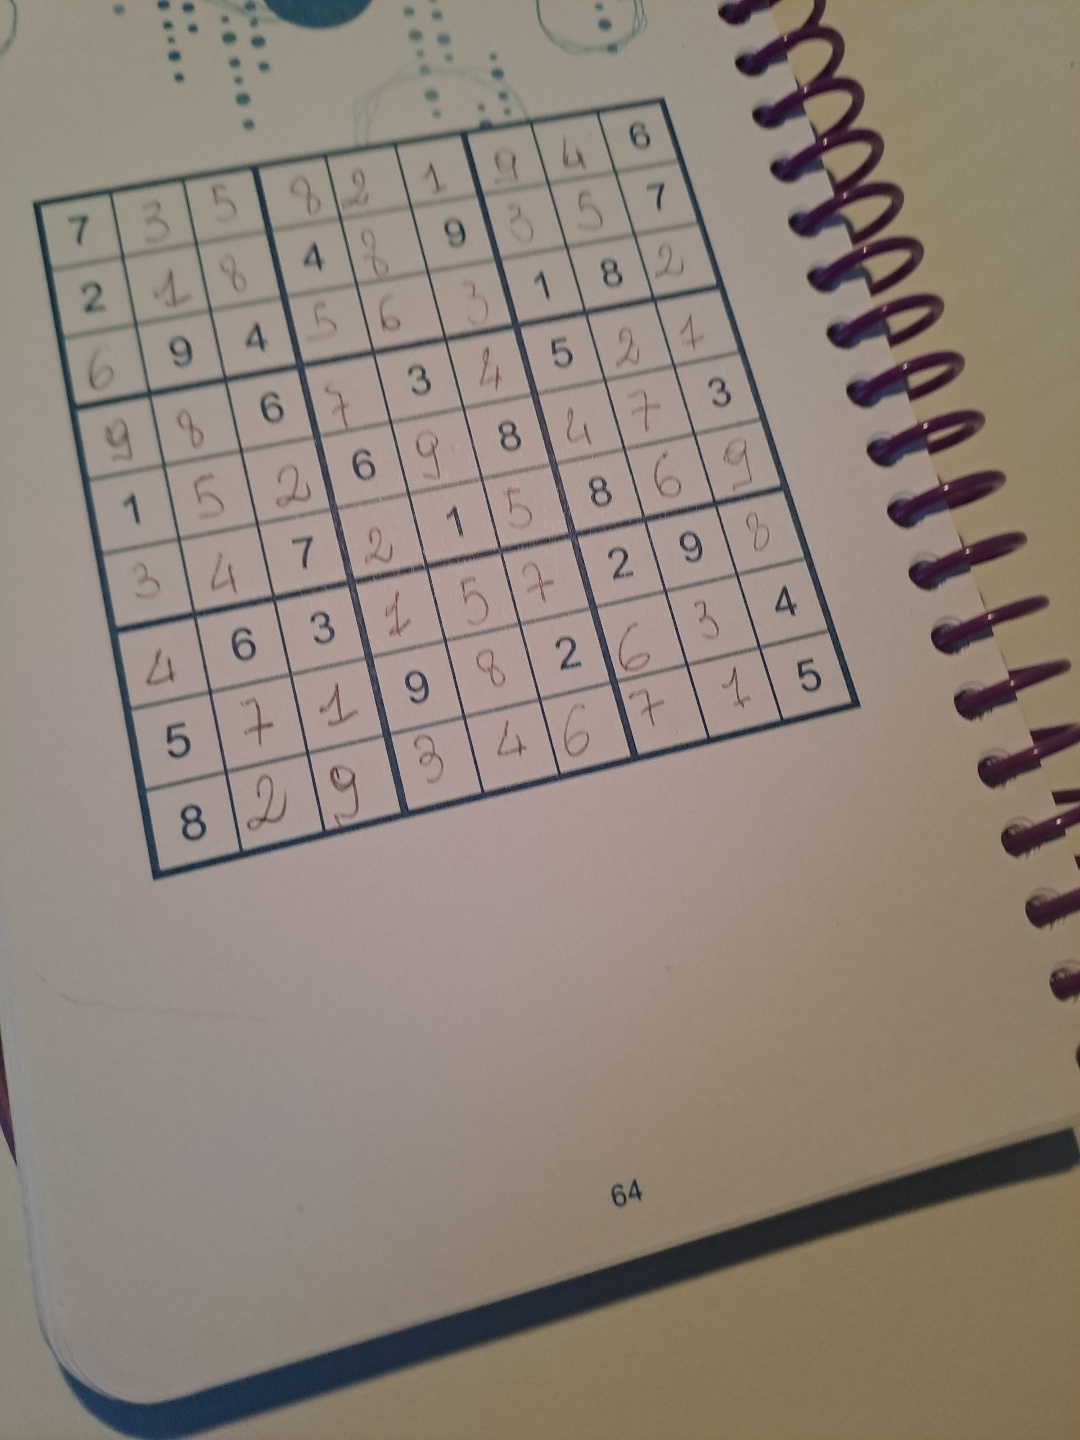 7 3 5 8 2 1 9 4 6
2 1 8 4 8 9 3 5 7
6 9 4 5 6 3 1 8 2
9 8 6 7 3 4 5 2 1
1 5 2 6 9 8 4 7 3
3 4 7 2 1 5 8 6 9
4 6 3 1 5 7 2 9 8
5 7 1 9 8 2 6 3 4
8 2 9 3 4 6 7 1 5
64